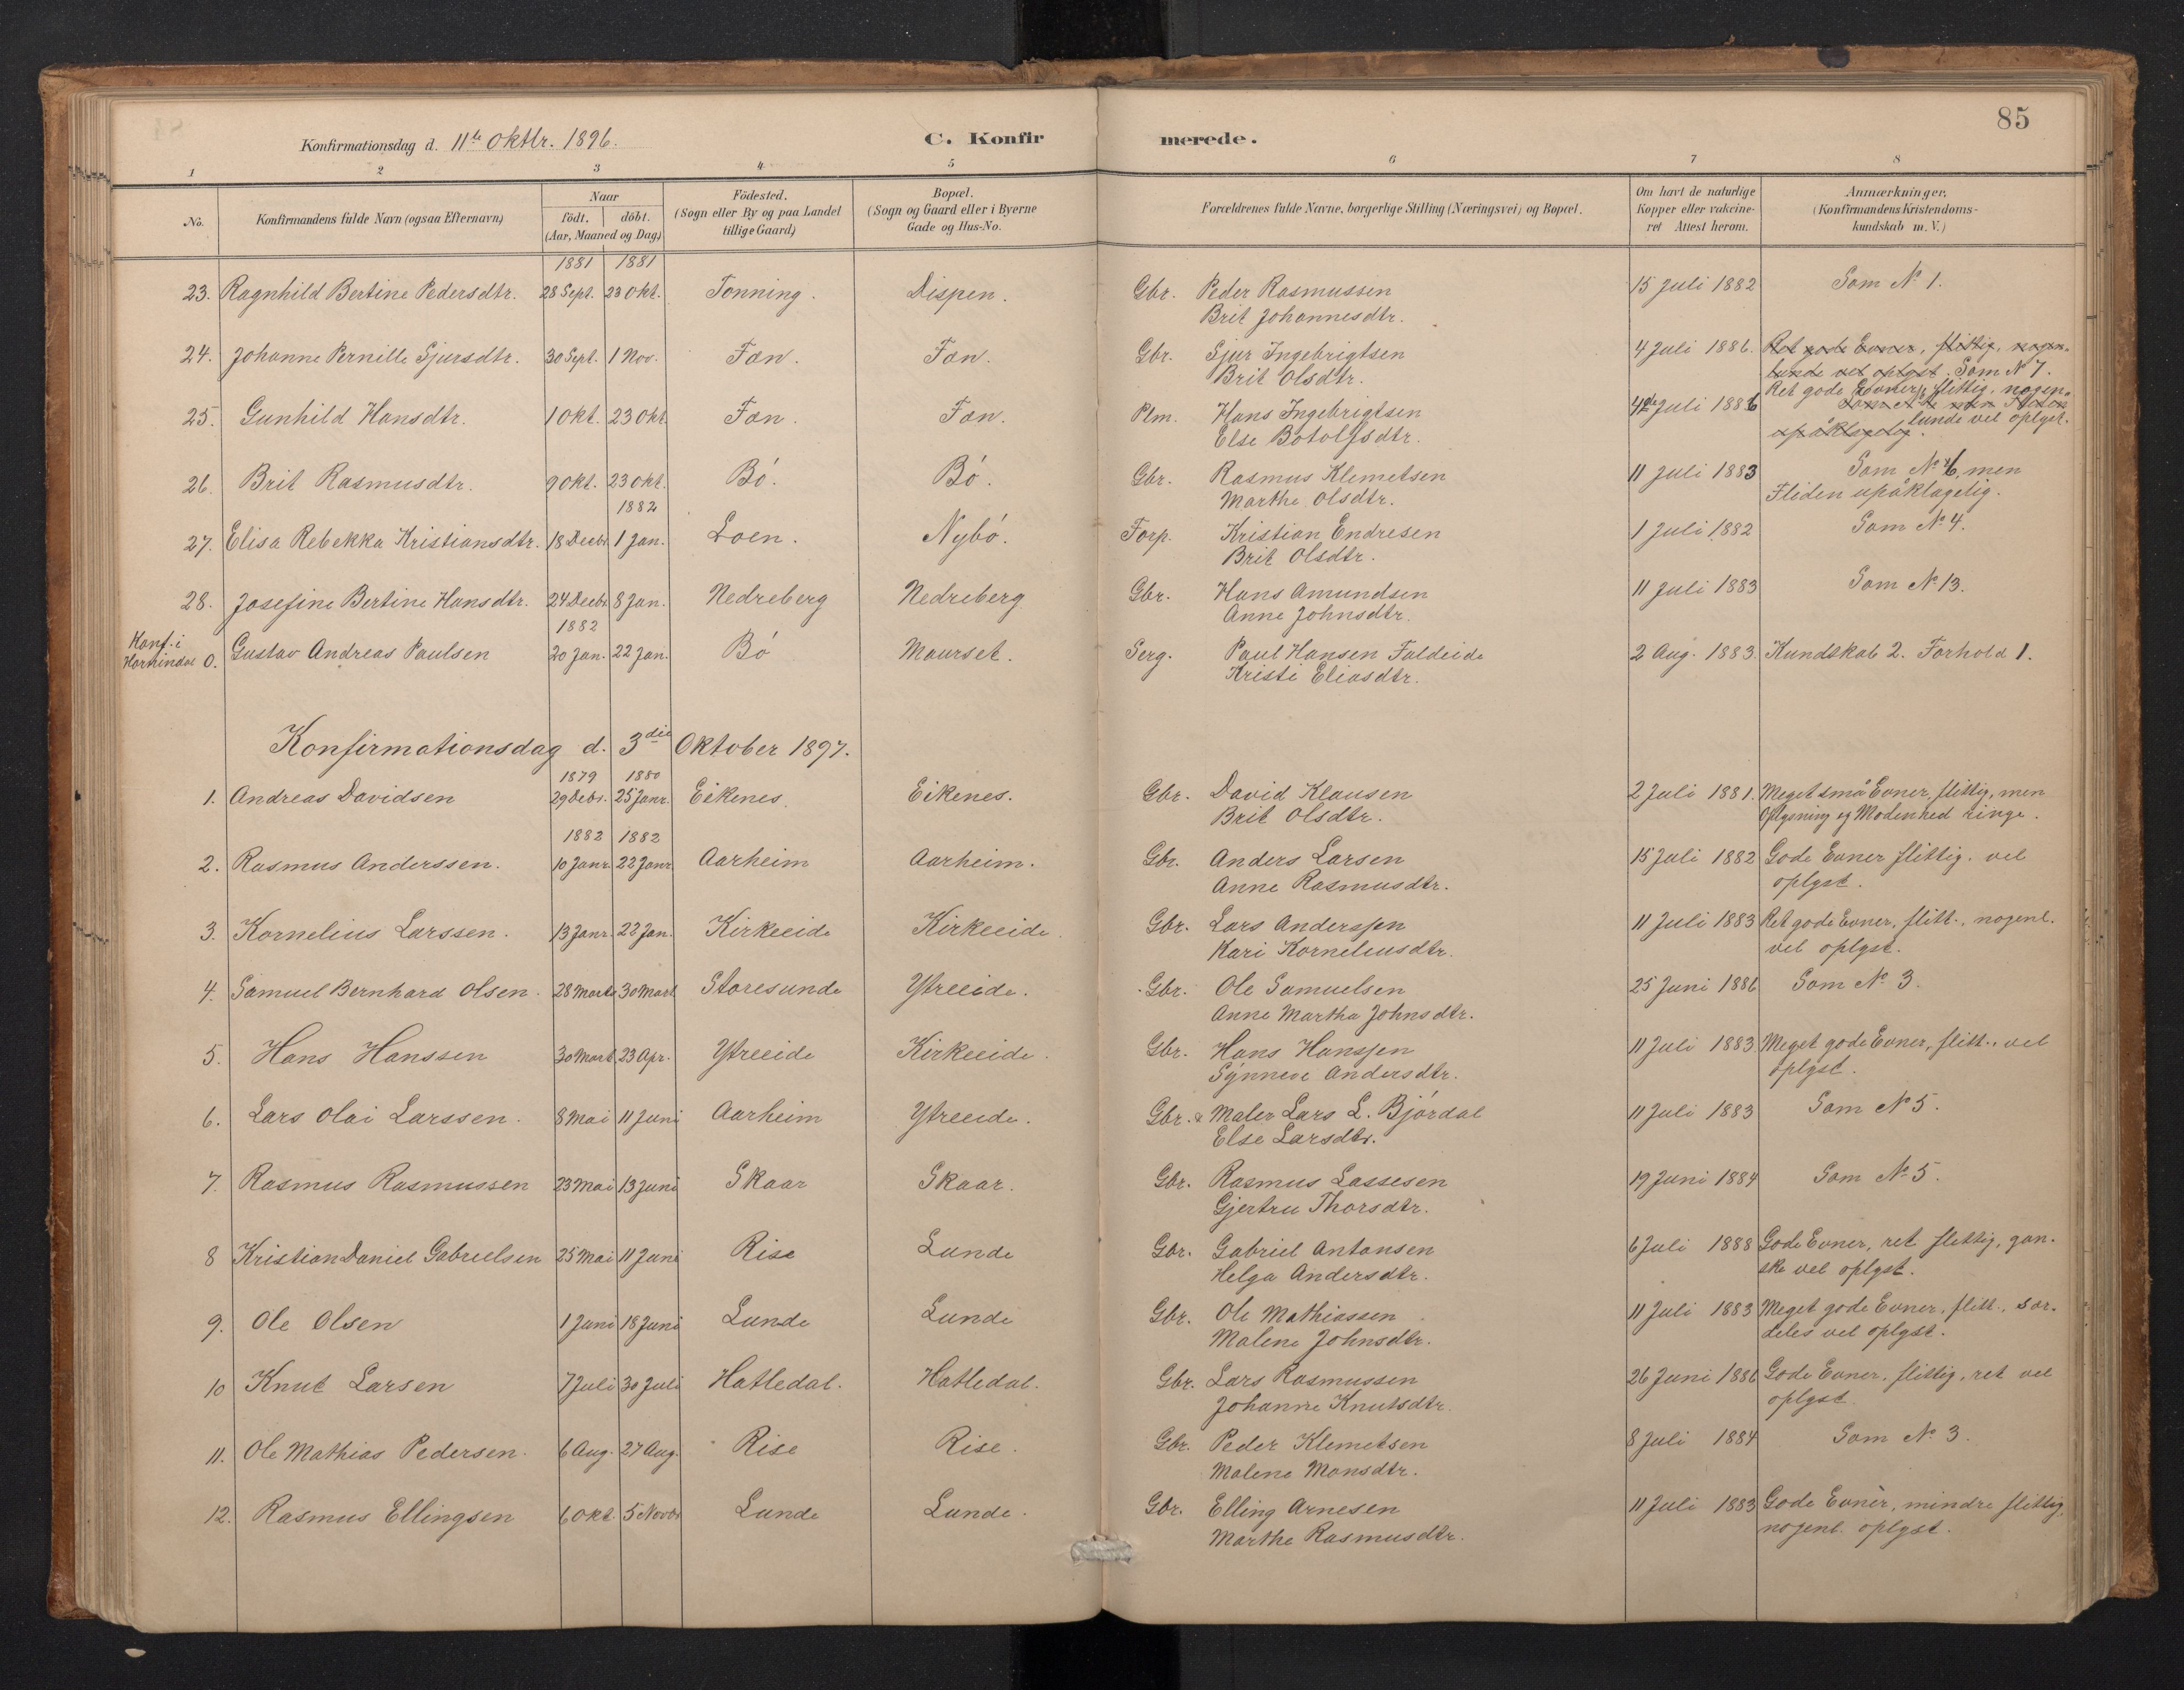 85
Konfirmationsdag d. 11te Oktbr. 1896.
C. Konfirmerede.
1 2 3 4 5 6 7 8
No.
Konfirmandens fulde Navn (ogsaa Efternavn)
Naar
födt. döbt.
(Aar, Maaned og Dag)
Födested.
(Sogn eller By og paa Landet
tillige Gaard)
Bopæl.
(Sogn og Gaard eller i Byerne
Gade og Hus-No.
Forældrenes fulde Navne, borgerlige Stilling (Næringsvei) og Bopæl.
Om havt de naturlige
Kopper eller vakcine-
ret Attest herom.
Anmærkninger.
(Konfirmandens Kristendoms-
kundskab m. V.)
1881 1881
23. Ragnhild Bertine Pedersdtr. 28 Sept. 23 Okt. Tonning. Dispen. Gbr. Peder Rasmussen 15 Juli 1882 Som No 1.
Brit Johannesdtr.
24. Johanne Pernille Sjursdtr. 30 Sept. 1 Nov. Fæn. Fæn. Gbr. Sjur Ingebrigtsen 4 Juli 1886. Ret gode Evner, flittig, nogen-
Brit Olsdtr. lunde vel oplyst. Som No 7.
25. Gunhild Hansdtr. 1 Okt. 23 Okt. Fæn. Fæn. Plm. Hans Ingebrigtsen 4de Juli 1886 Ret gode Evner, flittig, nogen-
Else Botolfsdtr. lunde vel oplyst.
upåklagelig.
26. Brit Rasmusdtr. 9 Okt. 23 Okt. Bö. Bö. Gbr. Rasmus Klemetsen 11 Juli 1883 Som No 6, men
Marthe Olsdtr. Fliden upåklagelig.
1882
27. Elisa Rebekka Kristiansdtr. 18 Decbr. 1 Jan. Loen. Nybö. Forp. Kristian Endresen 1 Juli 1882 Som No 4.
Brit Olsdtr.
28. Josefine Bertine Hansdtr. 24 Decbr. 8 Jan. Nedreberg Nedreberg Gbr. Hans Amundsen 11 Juli 1883 Som No 13.
Anne Johnsdtr.
1882
Konf. i
Hornindal 0. Gustav Andreas Paulsen 20 Jan. 22 Jan. Bö Maurset. Serg. Paul Hansen Faldeide 2 Aug. 1883. Kundskab 2. Forhold 1.
Kristi Eliasdtr.
Konfirmationsdag d. 3die Oktober 1897.
1879 1880
1. Andreas Davidsen 29 Debr. 25 Janr. Eikenes. Eikenes. Gbr. David Klausen 2 Juli 1881. Meget små Evner, flittig, men
Brit Olsdtr. Oplysning og Modenhed ringe.
1882 1882
2. Rasmus Anderssen. 10 Janr. 22 Janr. Aarheim Aarheim. Gbr. Anders Larsen 15 Juli 1882 Gode Evner flittig. vel
Anne Rasmusdtr. oplyst.
3. Kornelius Larssen. 13 Janr. 22 Jan. Kirkeeide Kirkeeide. Gbr. Lars Anderssen 11 Juli 1883 Ret gode Evner, flitt., nogenl.
Kari Korneliusdtr. vel oplyst.
4. Samuel Bernhard Olsen. 28 Marts 30 Mart Storesunde Ytreeide. Gbr. Ole Samuelsen 25 Juni 1886 Som No 3.
Anne Martha Johnsdtr.
5. Hans Hanssen 30 Mart 23 Apr. Ytreeide Kirkeeide. Gbr. Hans Hanssen 11 Juli 1883 Meget gode Evner, flitt., vel
Synneve Andersdtr. oplyst.
6. Lars Olai Larssen. 8 Mai 11 Juni Aarheim Ytreeide. Gbr. & Maler Lars L. Bjørdal 11 Juli 1883 Som No 5.
Else Larsdtr.
7. Rasmus Rasmussen 23 Mai 13 Juni Skaar Skaar. Gbr. Rasmus Lassesen 19 Juni 1884 Som No 5.
Gjertru Thorsdtr.
8 Kristian Daniel Gabrielsen 25 Mai 11 Juni Rise Lunde Gbr. Gabriel Antonsen 6 Juli 1888 Gode Evner, ret flittig, gan-
Helga Andersdtr. ske vel oplyst.
9. Ole Olsen 1 Juni 18 Juni Lunde Lunde Gbr. Ole Mathiassen 11 Juli 1883 Meget gode Evner, flitt., sær-
Malene Johnsdtr. deles vel oplyst.
10 Knut Larsen 7 Juli 30 Juli Hatledal. Hatledal. Gbr. Lars Rasmussen 26 Juni 1886 Gode Evner, flittig, ret vel
Johanne Knutsdtr. oplyst.
11. Ole Mathias Pedersen. 6 Aug. 27 Aug. Rise Rise. Gbr. Peder Klemetsen 8 Juli 1884 Som No 3.
Malene Monsdtr.
12. Rasmus Ellingsen 6 Okt. 5 Novbr Lunde Lunde. Gbr. Elling Arnesen 11 Juli 1883 Gode Evner, mindre flittig,
Marthe Rasmusdtr. nogenl. oplyst.